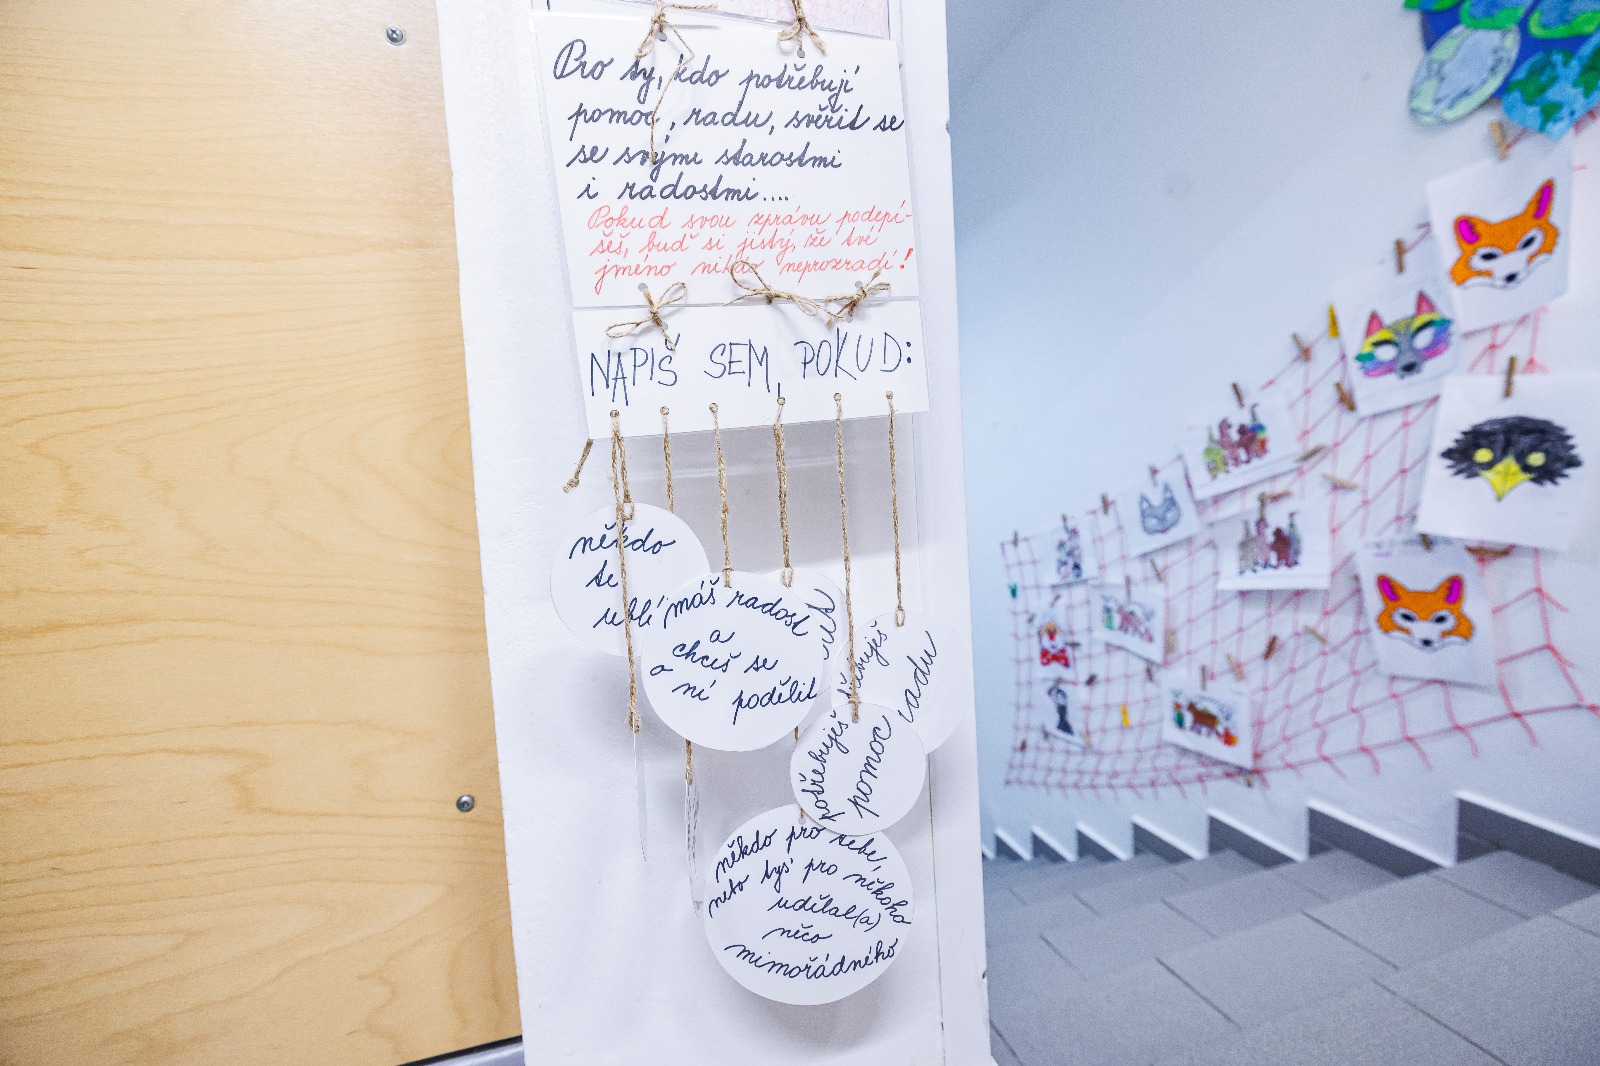 Pro ty, kdo potřebují
pomoc, radu, svěřit se
se svými starostmi
i radostmi....
Pokud svou zprávu podepí-
šeš, buď si jistý, že tvé
jméno nikdo neprozradí!
NAPIŠ SEM, POKUD:
někdo
te
máš radost
a
chceš se
o
ní podělit
radu
potřebuješ
pomoc
někdo pro tebe,
nebo tys pro někoho
udělal(a)
něco
mimořádného